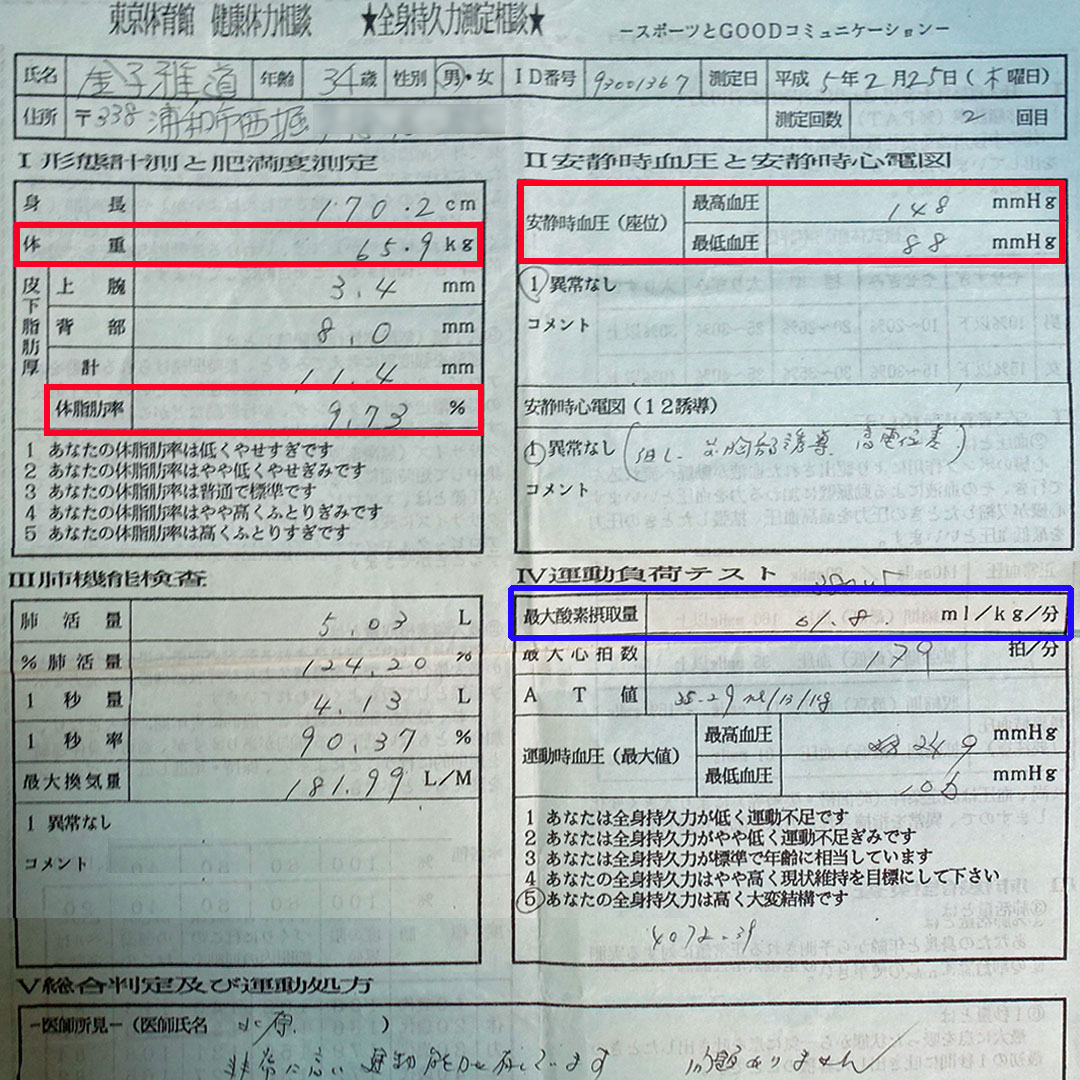 東京体育館 健康体力相談 ★全身持久力測定相談★ －スポーツとGOODコミュニケーション－
氏名 金子雅道 年齢 34歳 性別 男・女 ID番号 93001367 測定日 平成5年2月25日(木曜日)
住所 〒338 浦和市西堀 測定回数 2回目
Ⅰ形態計測と肥満度測定
身長 170.2cm
体重 65.9kg
皮下脂肪厚 上腕 3.4mm
背部 8.0mm
計 11.4mm
体脂肪率 9.73%
1 あなたの体脂肪率は低くやせすぎです
2 あなたの体脂肪率はやや低くやせぎみです
3 あなたの体脂肪率は普通で標準です
4 あなたの体脂肪率はやや高くふとりぎみです
5 あなたの体脂肪率は高くふとりすぎです
Ⅱ安静時血圧と安静時心電図
安静時血圧(座位) 最高血圧 148mmHg
最低血圧 88mmHg
1 異常なし
コメント
安静時心電図(12誘導)
1 異常なし(但し 左胸部誘導 高電位差)
コメント
Ⅲ肺機能検査
肺活量 5.03L
%肺活量 124.20%
1秒量 4.13L
1秒率 90.37%
最大換気量 181.99L/M
1 異常なし
コメント
Ⅳ運動負荷テスト
最大酸素摂取量 61.8 ml/kg/分
最大心拍数 179拍/分
AT値 35.29
運動時血圧(最大値) 最高血圧 249mmHg
最低血圧 106mmHg
1 あなたは全身持久力が低く運動不足です
2 あなたは全身持久力がやや低く運動不足ぎみです
3 あなたは全身持久力が標準で年齢に相当しています
4 あなたの全身持久力はやや高く現状維持を目標にして下さい
5 あなたの全身持久力は高く大変結構です
4072.39
Ⅴ総合判定及び運動処方
－医師所見－(医師氏名 )
非常に高い運動能力を有しています 問題ありません